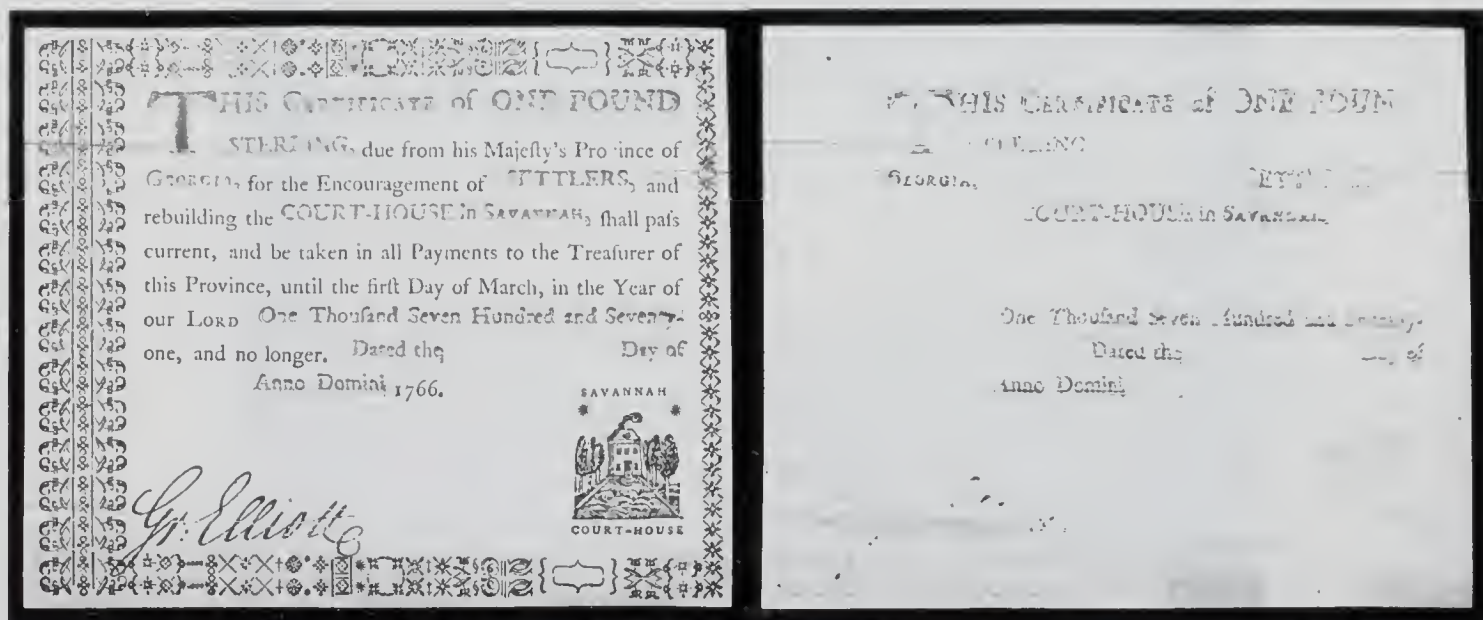 THIS CERTIFICATE of ONE POUND
STERLING, due from his Majeſty's Pro ince of
GEORGIA, for the Encouragement of SETTLERS, and
rebuilding the COURT-HOUSE in SAVANNAH, ſhall paſs
current, and be taken in all Payments to the Treaſurer of
this Province, until the firſt Day of March, in the Year of
our LORD One Thouſand Seven Hundred and Seventy-
one, and no longer. Dated the Day of
Anno Domini 1766.
SAVANNAH
COURT-HOUSE
Gr. Elliott
THIS CERTIFICATE of ONE POUN
STERLING
GEORGIA,
COURT-HOUSE in SAVANNAH,
One Thouſand Seven Hundred and Seventy-
Dated the Day of
Anno Domini